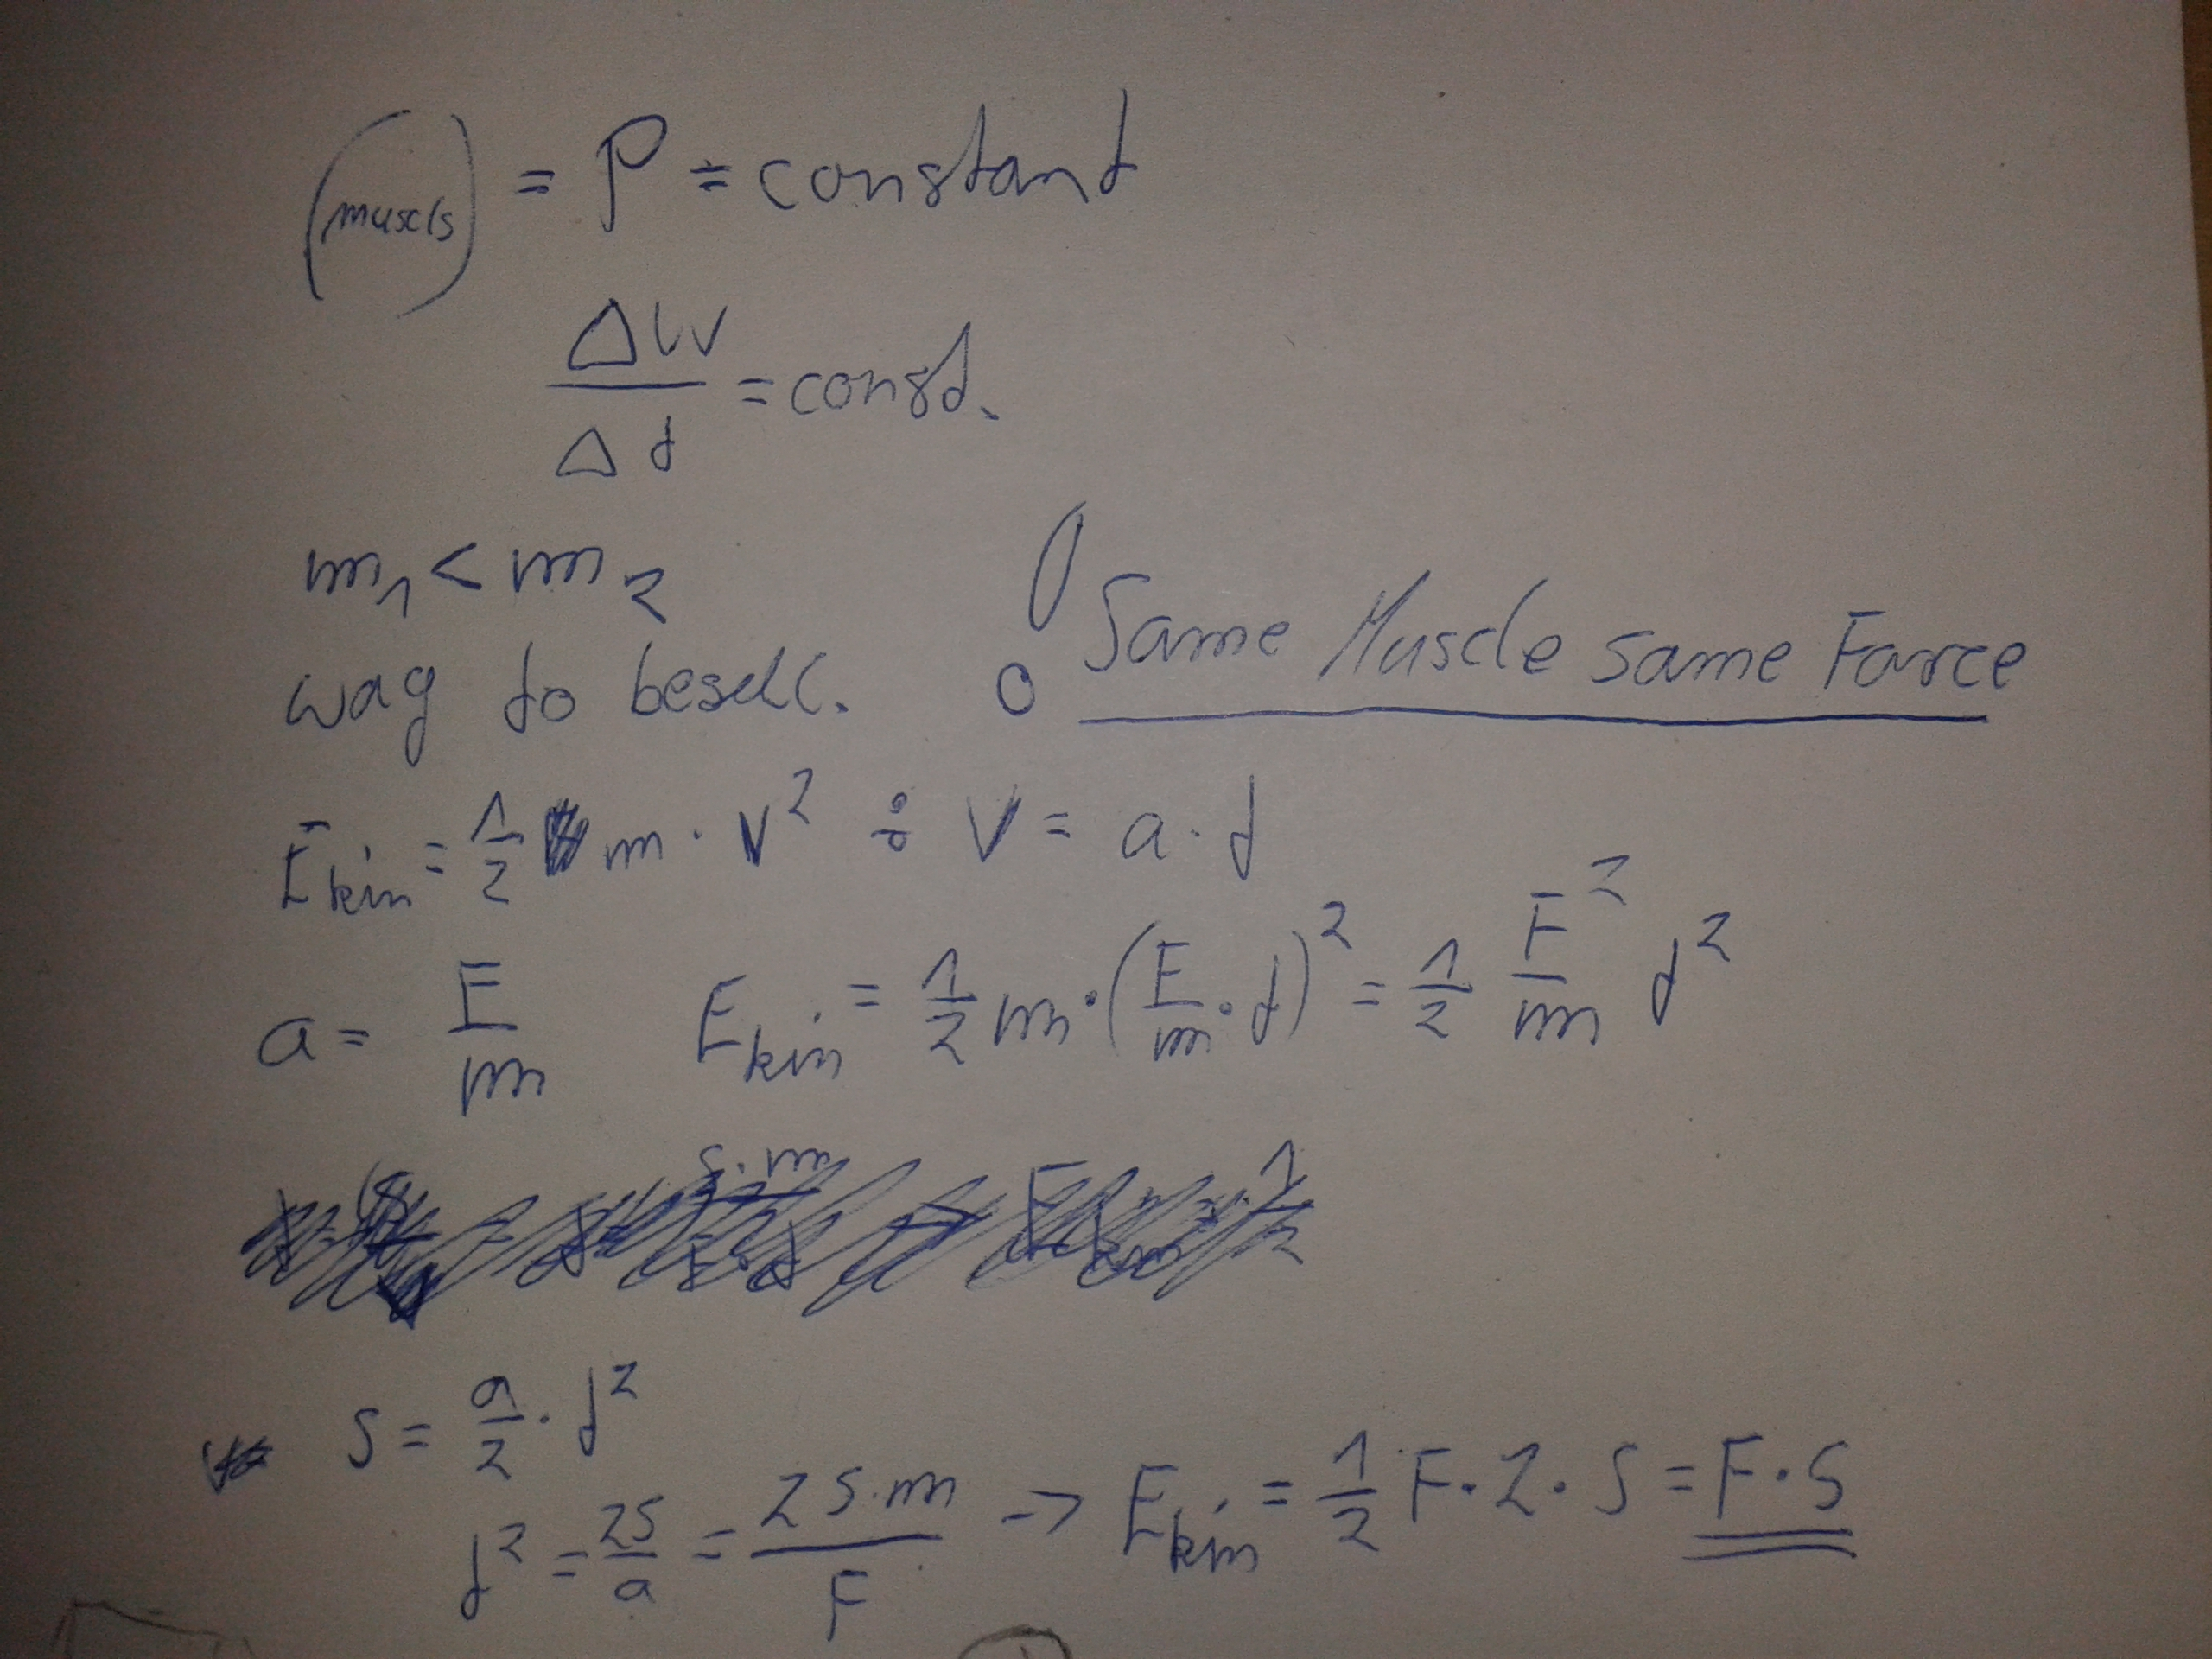 (muscls) = P = constant
ΔW/Δt = const.
m₁ < m₂
way to ! Same Muscle same Force
E_kin = 1/2 m · v² ; v = a · t
a = F/m E_kin = 1/2 m · (F/m · t)² = 1/2 F²/m t²
s = a/2 · t²
t² = 2s/a = 2s·m/F -> E_kin = 1/2 F · 2 · s = F · s